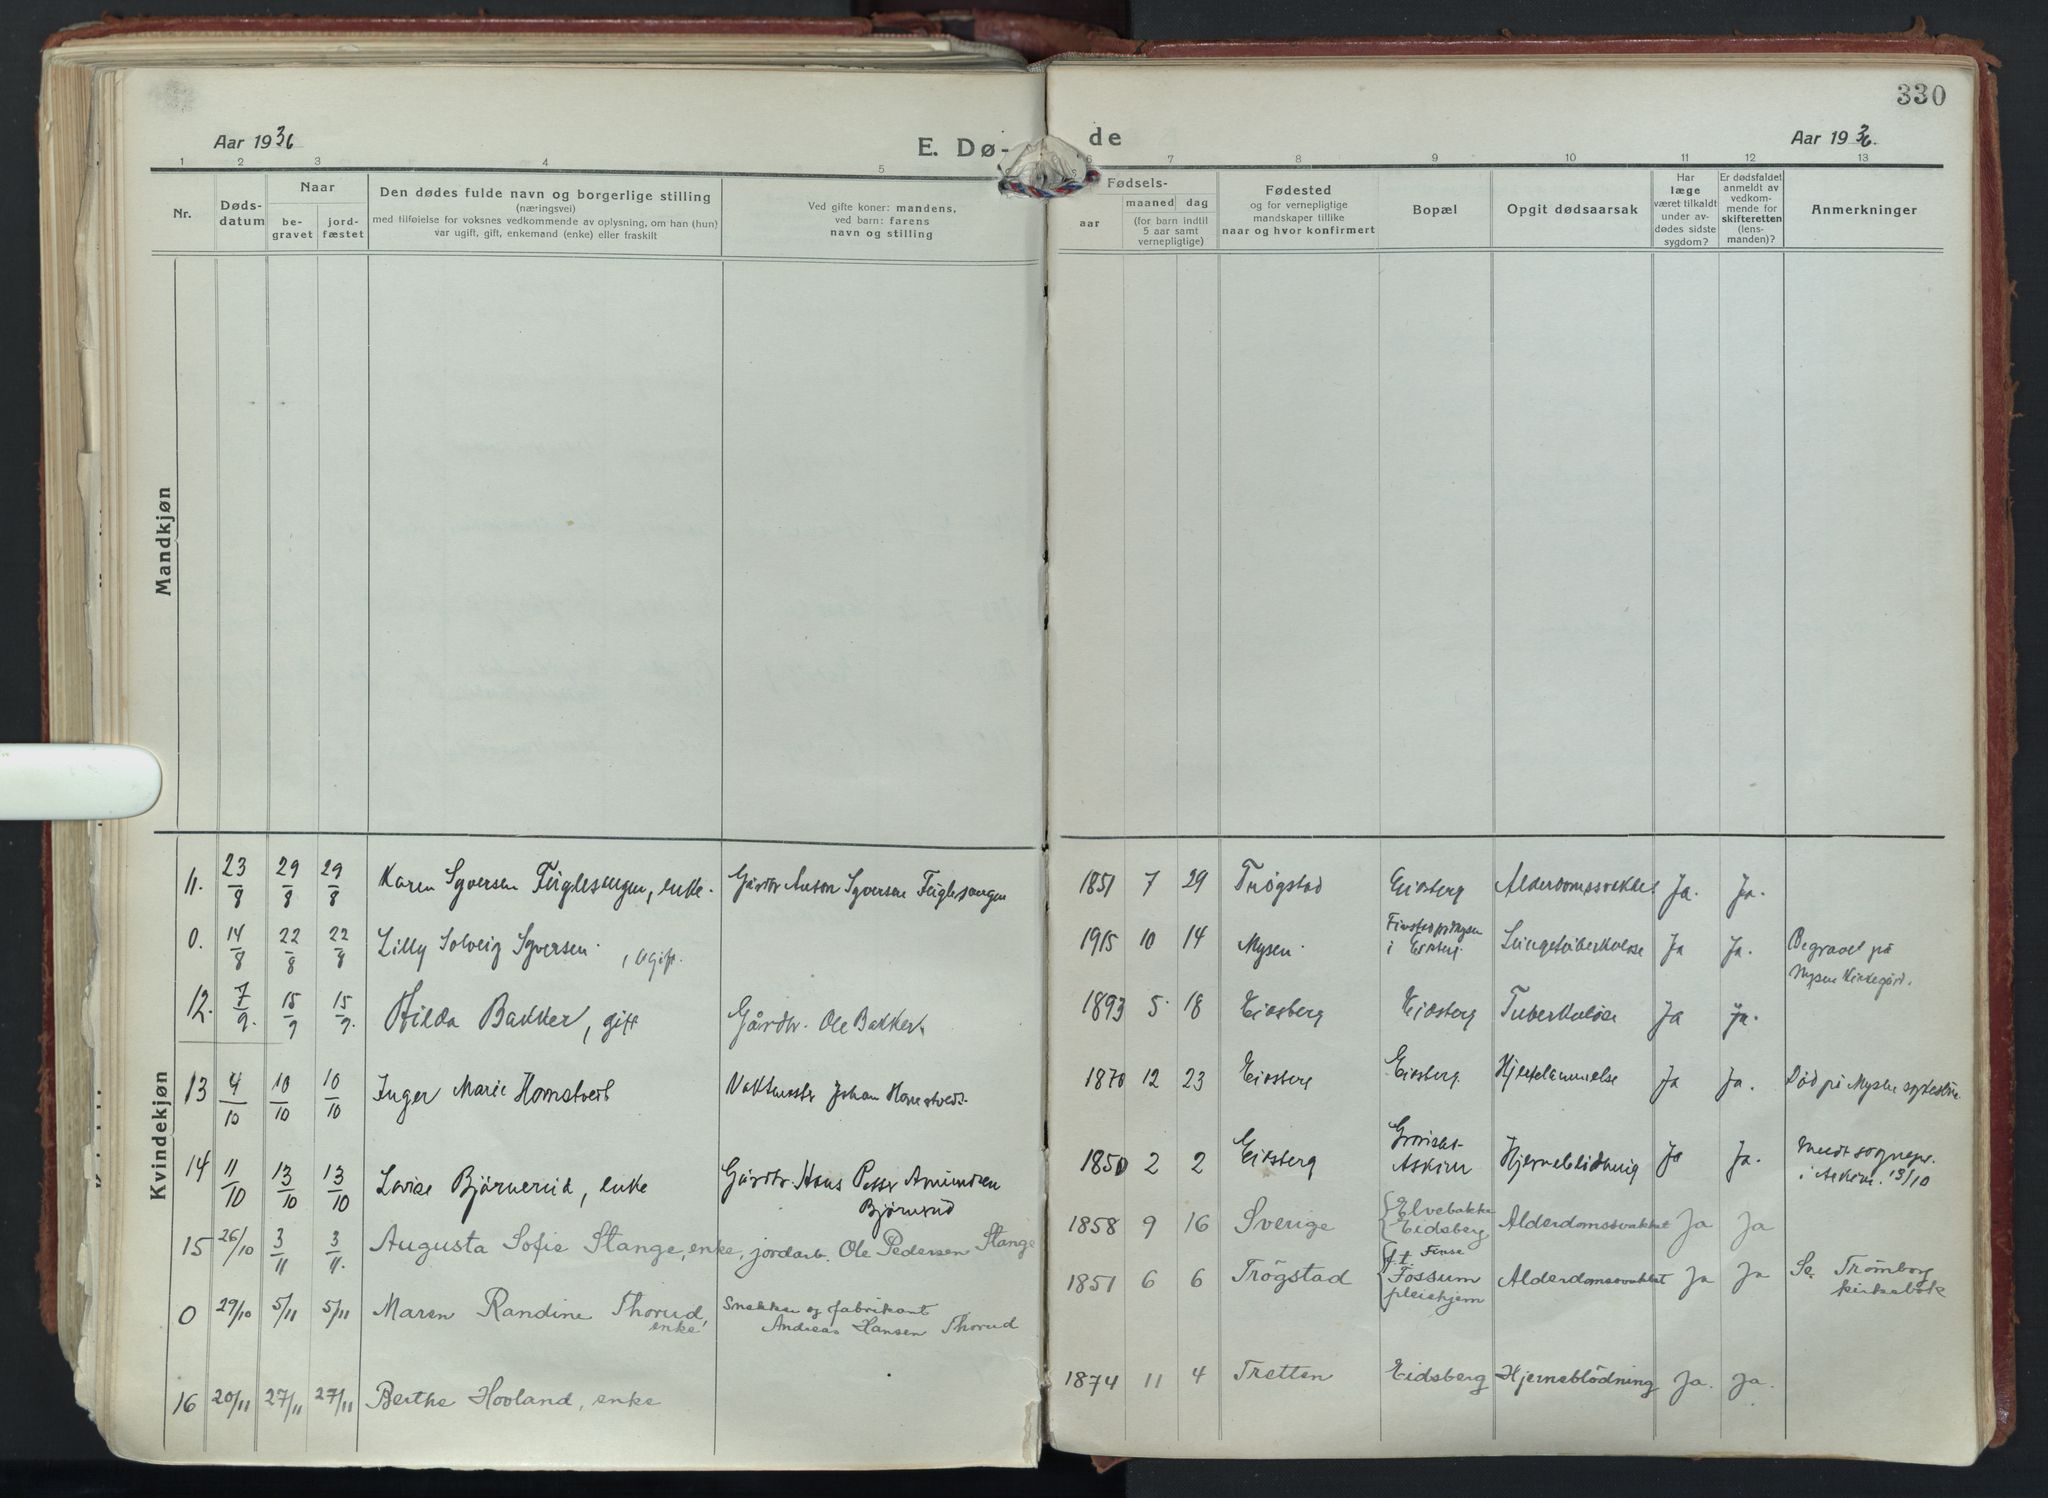 330
Aar 1936
E. Dø-
de
Aar 1936.
1 2 3 4 5 6 7 8 9 10 11 12 13
Nr.
Døds-
datum
Naar
be-
gravet
jord-
fæstet
Den dødes fulde navn og borgerlige stilling
(næringsvei)
med tilføielse for voksnes vedkommende av oplysning, om han (hun)
var ugift, gift, enkemand (enke) eller fraskilt
Ved gifte koner: mandens,
ved barn: farens
navn og stilling
Fødsels-
aar
maaned dag
(for barn indtil
5 aar samt
vernepligtige)
Fødested
og for vernepligtige
mandskaper tillike
naar og hvor konfirmert
Bopæl
Opgit dødsaarsak
Har
læge
været tilkaldt
under av-
dødes sidste
sygdom?
Er dødsfaldet
anmeldt av
vedkom-
mende for
skifteretten
(lens-
manden)?
Anmerkninger
Mandkjøn
Kvindekjøn
11. 23/8 29/8 29/8 Karen Syversen Fuglesangen, enke. Gårdbr. Anton Syversen Fuglesangen 1851 7 29 Trøgstad Eidsberg Alderdomssvakhet Ja. Ja.
0. 14/8 22/8 22/8 Lilly Solveig Syversen, ugift. 1915 10 14 Mysen Mysen
i Eidsberg Lungetuberkulose Ja Ja. Begravet på
Mysen kirkegård.
12. 7/9. 15/9 15/9. Hilda Bakker, gift Gårdbr. Ole Bakker 1893 5 18 Eidsberg Eidsberg Tuberkulose Ja Ja.
13 4/10 10/10 10/10 Inger Marie Homstvedt Vaktmester Johan Homstvedt. 1870 12 23 Eidsberg Eidsberg. Hjertelammelse Ja Ja. Død på Mysen
14 11/10 13/10 13/10 Lovise Bjørnerud, enke Gårdbr. Hans Petter Amundsen
Bjørnerud 1850 2 2 Eidsberg
Askim Hjerneblødning Ja Ja. sognepr.
i Askim. 13/10
15 26/10 3/11 3/11. Augusta Sofie Stange, enke, jordarb. Ole Pedersen Stange 1858 9 16 Sverige Elvebakke
Eidsberg Alderdomssvakhet Ja Ja
0 29/10 5/11 5/11 Maren Randine Thorud,
enke Snekker og fabrikant
Andreas Hansen Thorud 1851 6 6 Trøgstad f.t.
Fossum
pleiehjem Alderdomssvakhet Ja Ja Se Trømborg
kirkebok
16 20/11 27/11 27/11 Berthe Hovland, enke 1874 11 4 Tretten Eidsberg Hjerneblödning Ja. Ja.